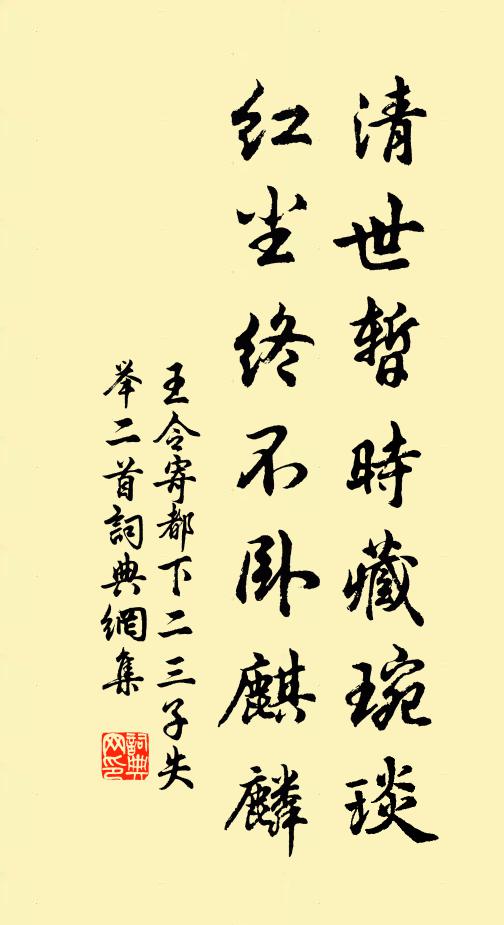 清世暫時藏琬琰
红尘终不卧麒麟
王令寄都下二三子失
举二首詞典網集
詞典网印